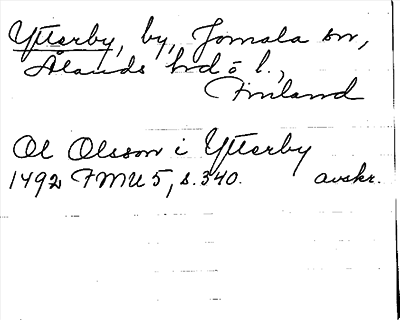 Ytterby, by, Jomala sn,
Ålands hd o l.,
Finland
Ol Olsson i Ytterby
1492 FMU 5, s. 340. avskr.